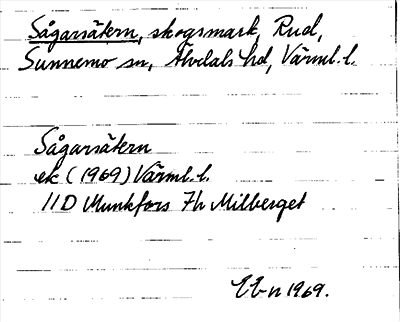 Sågarsätern, skogsmark, Rud,
Sunnemo sn, Älvdals hd, Värml. l.
Sågarsätern
ek (1969) Värml. l.
11D Munkfors 7h Milberget
1969.